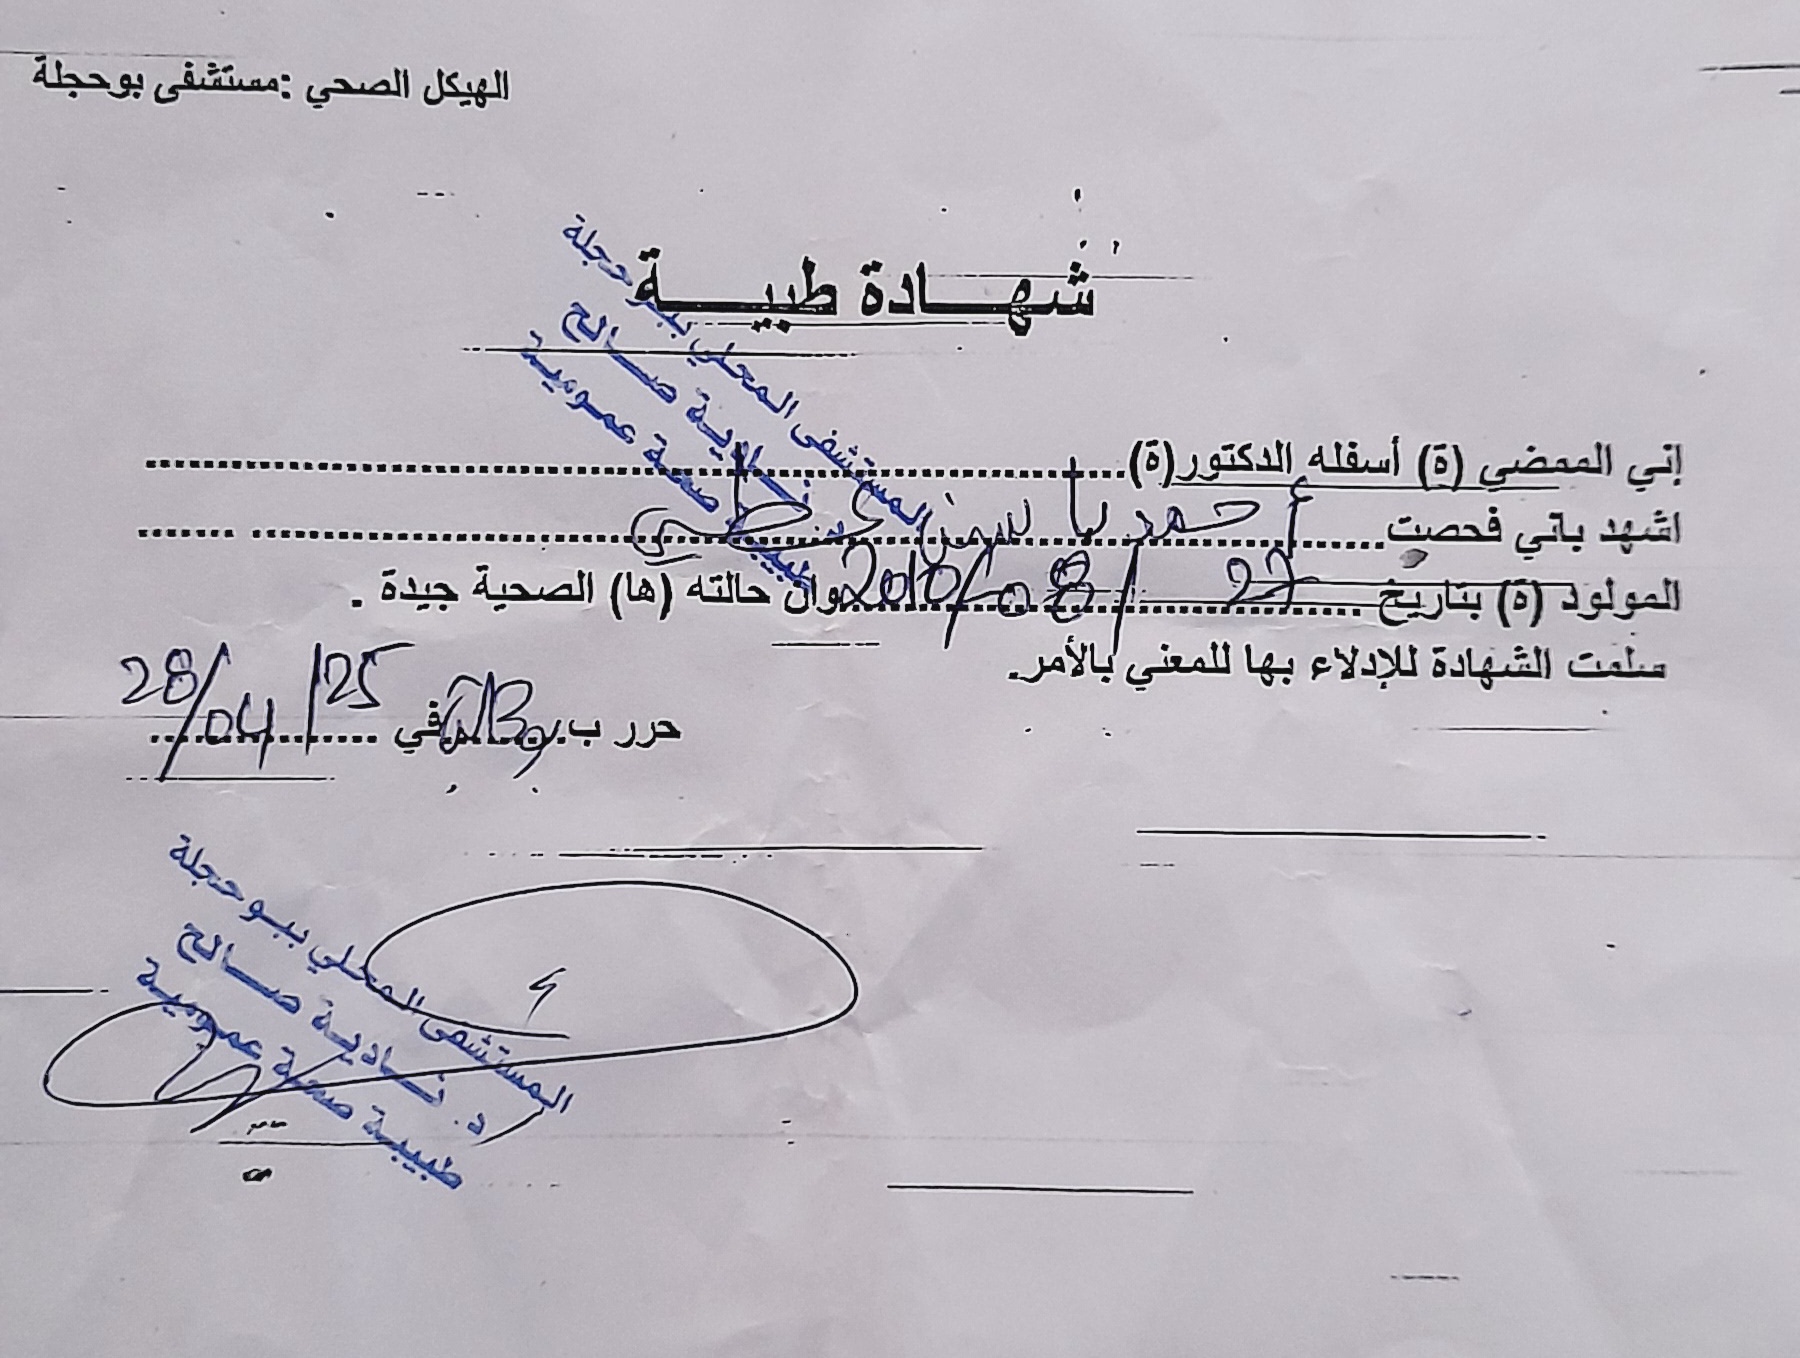 الهيكل الصحي :مستشفى بوحجلة
شهادة طبية
إني الممضي (ة) أسفله الدكتور(ة)
المستشفى المحلي ببوحجلة
د. نادية صالح
طبيبة صحة عمومية
اشهد باني فحصت أحمد ياسين
المولود (ة) بتاريخ 22/08/2010 وان حالته (ها) الصحية جيدة .
سلمت الشهادة للإدلاء بها للمعني بالأمر.
حرر ب في 28/04/25
المستشفى المحلي ببوحجلة
د. نادية صالح
طبيبة صحة عمومية